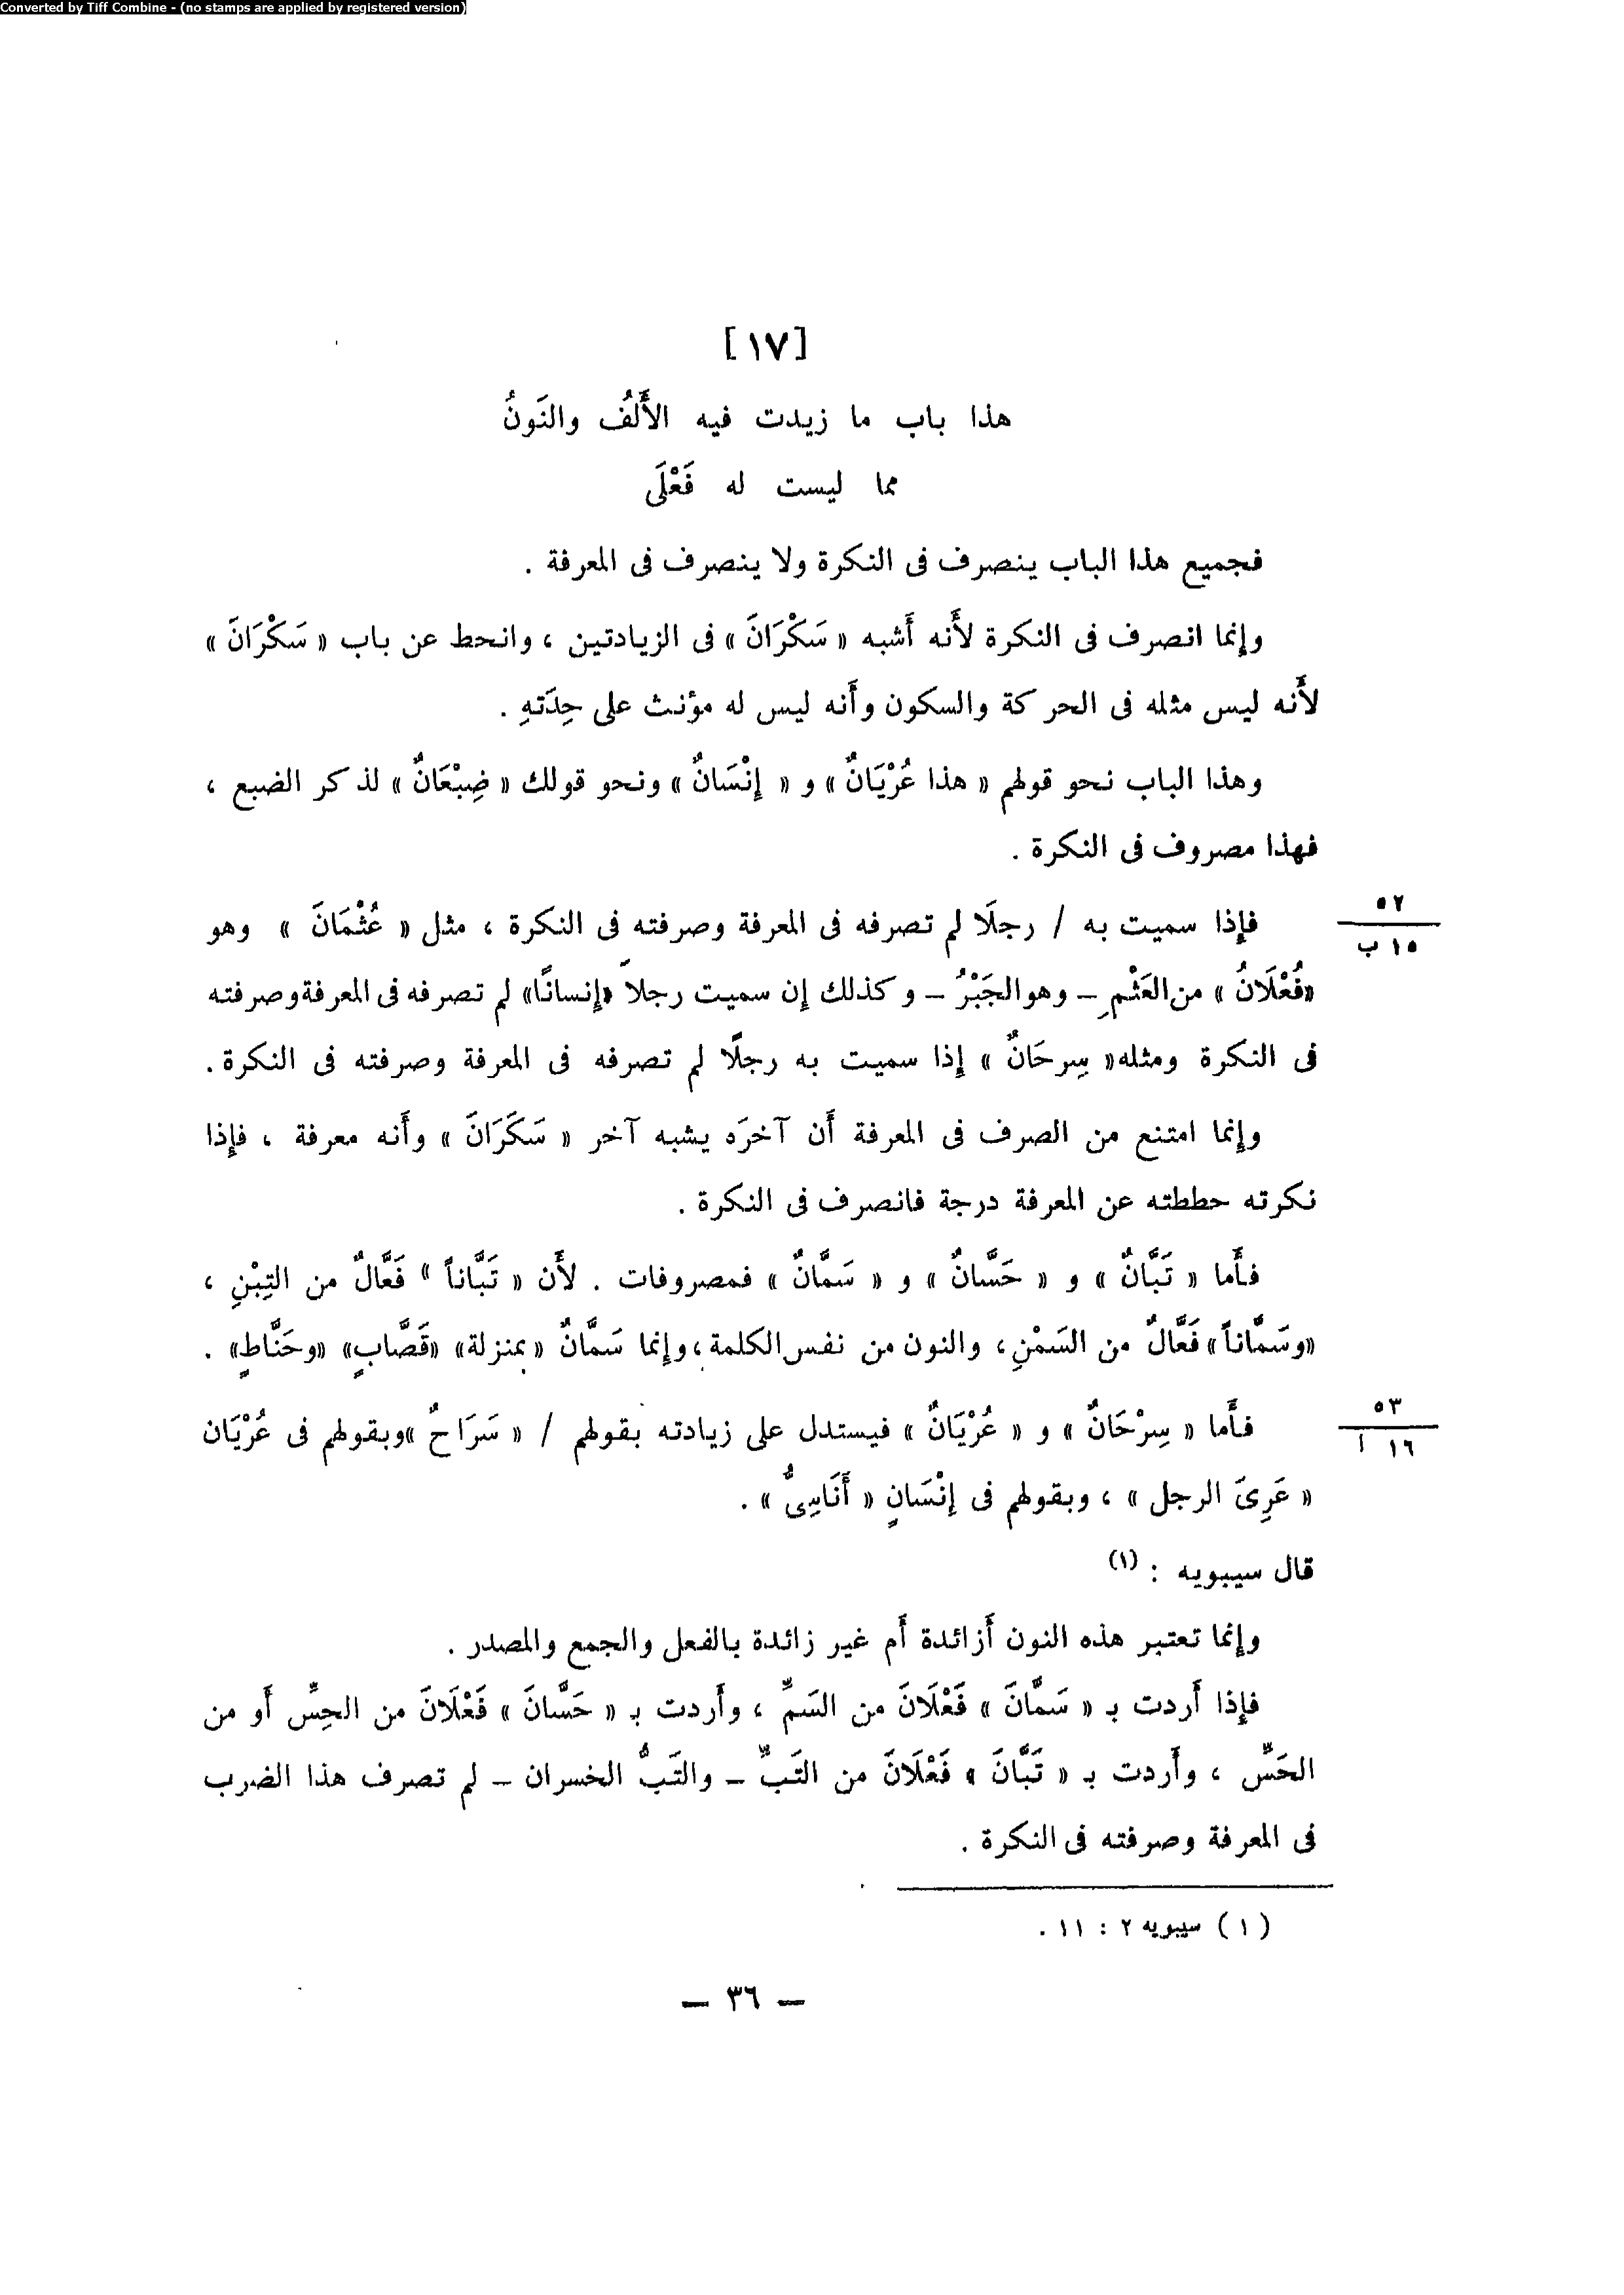 Converted by Tiff Combine - (no stamps are applied by registered version)
[١٧]
هذا باب ما زيدت فيه الأَلفُ والنَونُ
مما ليست له فَعْلَى
فجميع هذا الباب ينصرف فى النكرة ولا ينصرف فى المعرفة .
وإنما انصرف فى النكرة لأَنه أَشبه « سَكْرَانَ » فى الزيادتين ، وانحط عن باب « سَكْرَانَ »
لأَنه ليس مثله فى الحركة والسكون وأَنه ليس له مؤنث على حِدَتهِ .
وهذا الباب نحو قولهم « هذا عُرْيَانٌ » و « إِنْسَانٌ » ونحو قولك « ضِبْعَانٌ » لذكر الضبع ،
فهذا مصروف فى النكرة .
فإِذا سميت به / رجلًا لم تصرفه فى المعرفة وصرفته فى النكرة ، مثل « عُثْمَانَ » وهو
٥٢
١٥ ب
«فُعْلَانُ » من العَثْمِ – وهو الجَبْرُ – وكذلك إن سميت رجلاً «إِنسانًا» لم تصرفه فى المعرفة وصرفته
فى النكرة ومثله« سِرحَانٌ » إِذا سميت به رجلًا لم تصرفه فى المعرفة وصرفته فى النكرة .
وإِنما امتنع من الصرف فى المعرفة أَن آخرَه يشبه آخر « سَكَرَانَ » وأَنه معرفة ، فإِذا
نكرته حططته عن المعرفة درجة فانصرف فى النكرة .
فأَما « تَبَّانٌ » و « حَسَّانٌ » و « سَمَّانٌ » فمصروفات . لأَن « تَبَّاناً » فَعَّالٌ من التِبْنِ ،
«وسَمَّاناً» فَعَّالٌ من السَمْنِ ، والنون من نفس الكلمة ، وإنما سَمَّانٌ « بمنزلة» «قَصَّابٍ» «وحَنَّاطٍ» .
فأَما « سِرْحَانٌ » و « عُرْيَانٌ » فيستدل على زيادته بقولهم / « سَرَاحٌ »وبقولهم فى عُرْيَان
٥٣
١٦ أ
« عَرِىَ الرجل » ، وبقولهم فى إِنْسَانٍ « أَنَاسِىُّ » .
قال سيبويه : (١)
وإِنما تعتبر هذه النون أَزائدة أَم غير زائدة بالفعل والجمع والمصدر .
فإِذا أَردت بـ « سَمَّانَ » فَعْلَانَ من السَمِّ ، وأَردت بـ « حَسَّانَ » فَعْلَانَ من الحِسِّ أَو من
الحَسِّ ، وأَردت بـ « تَبَّانَ » فَعْلَانَ من التَبِّ – والتَبُّ الخسران – لم تصرف هذا الضرب
فى المعرفة وصرفته فى النكرة .
(١) سيبويه ٢ : ١١ .
– ٣٦ –